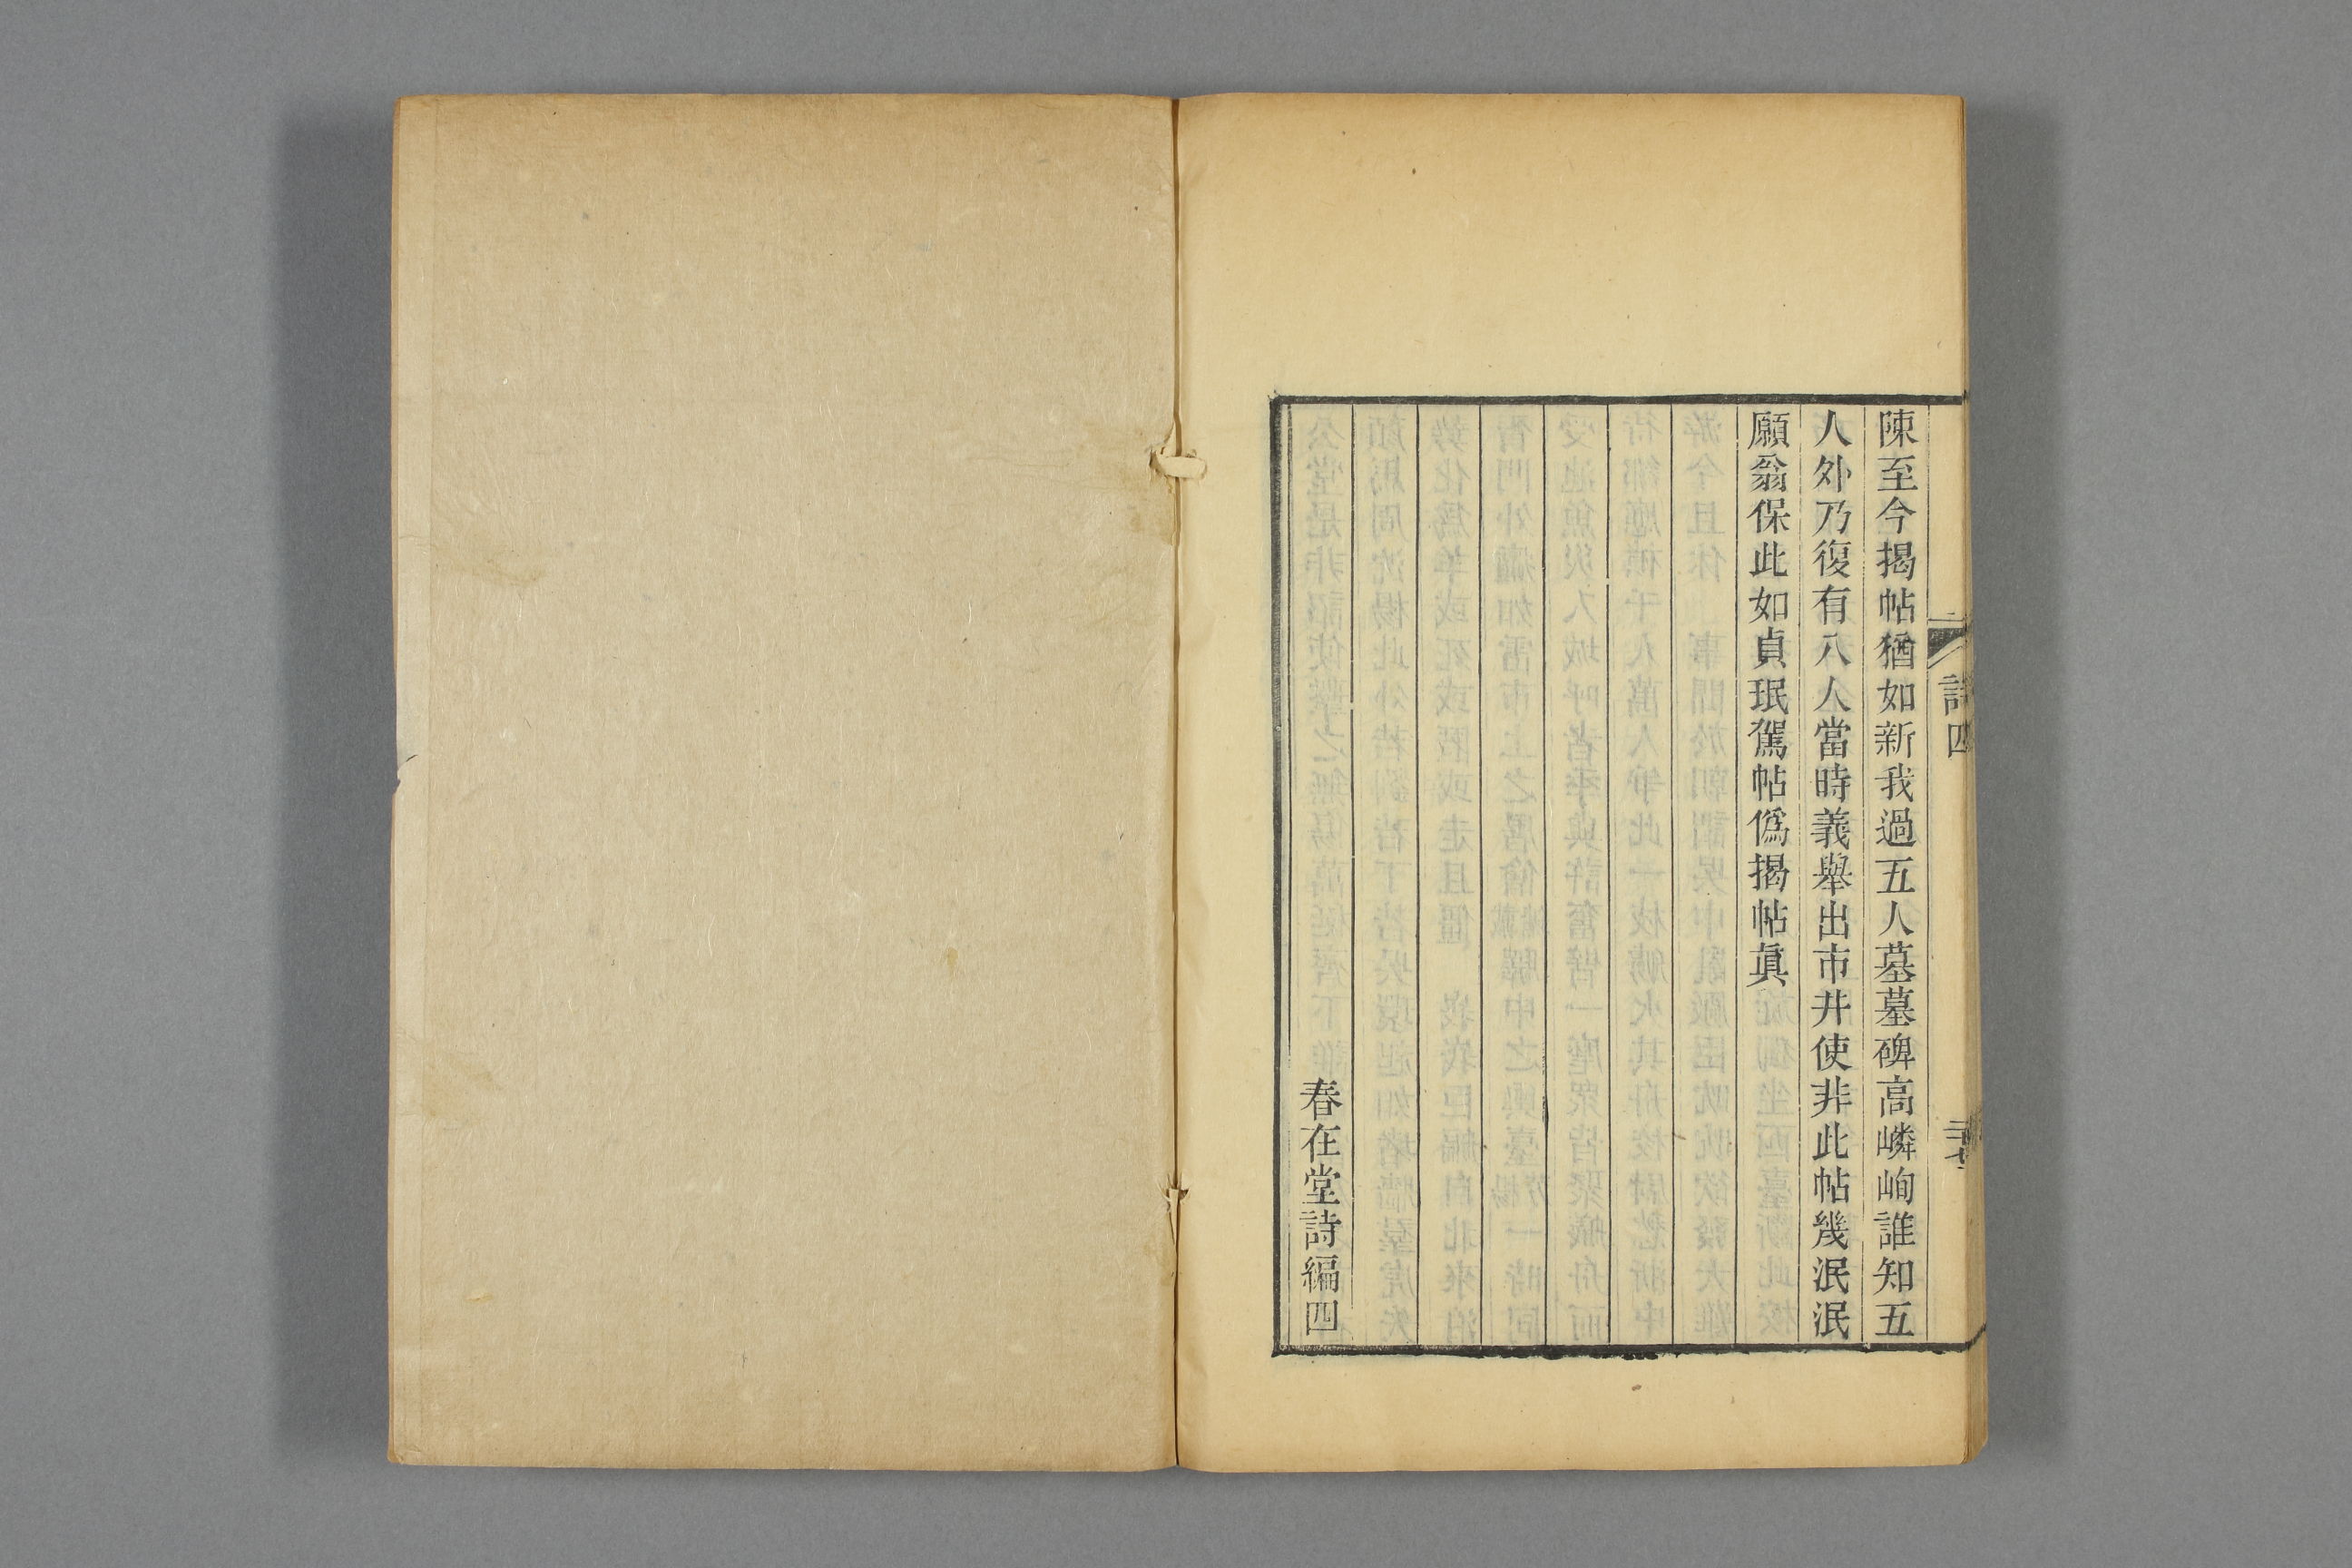 詩四
二十七
陳至今揭帖猶如新我過五人墓墓碑高嶙峋誰知五
人外乃復有八人當時義舉出市井使非此帖幾泯泯
願翁保此如貞珉駕帖僞揭帖眞
春在堂詩編四